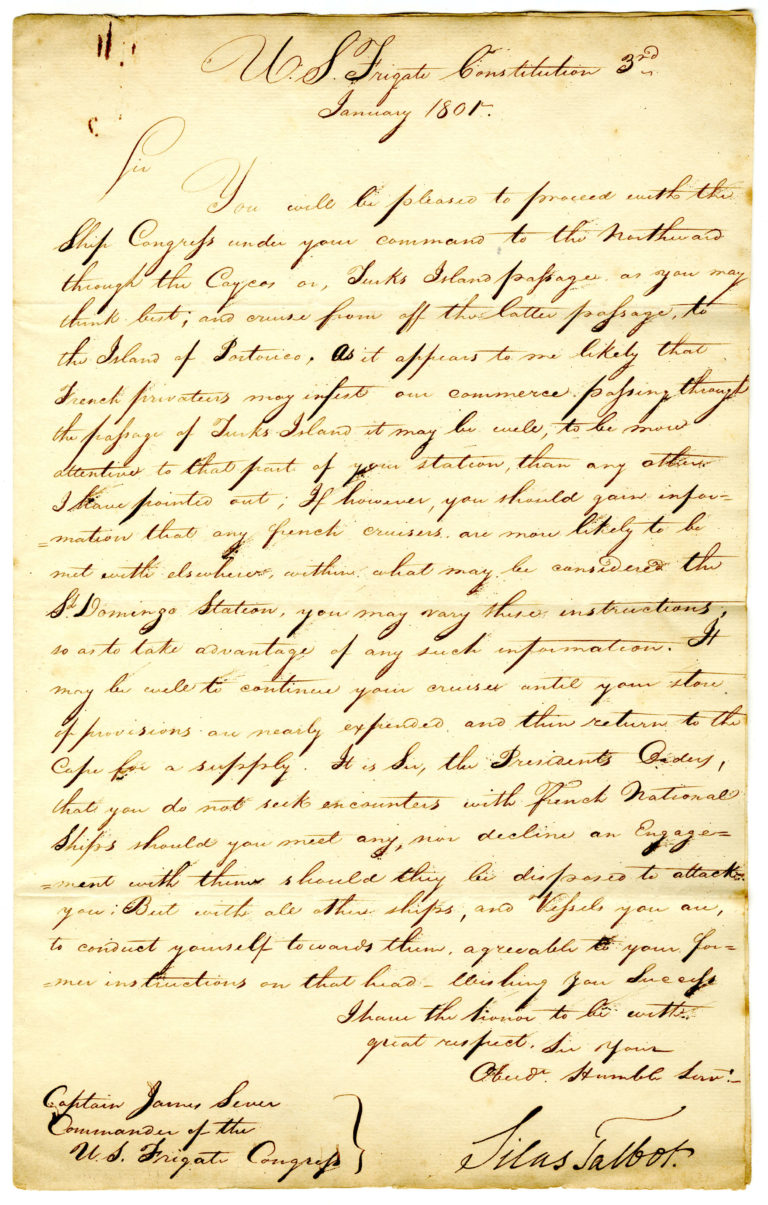 U. S. Frigate Constitution 3rd
January 1801.
Sir
You will be pleased to proceed with the
Ship Congress under your command to the Northward
through the Caycos or, Turks Island passage. as you may
think best; and cruise from off the latter passage, to
the Island of Portorico, As it appears to me likely that
French privateers may infest our commerce. passing through
the passage of Turks Island it may be well, to be more
attentive to that part of your station, than any other
I have pointed out; If however, you should gain infor=
=mation that any french cruisers are more likely to be
met with elsewhere, within what may be considered the
St Domingo Station, you may vary these instructions,
so as to take advantage of any such information. It
may be well to continue your cruise until your store
of provisions are nearly expended and then return to the
Cape for a supply. It is Sir, the Presidents Orders,
that you do not seek encounters with French National
Ships should you meet any, nor decline an Engage=
=ment with them should they be disposed to attack
you: But with all other ships, and Vessels you are,
to conduct yourself towards them, agreeable to your for=
=mer instructions on that head - Wishing you Success
I have the honor to be with
great respect. Sir Your
Obedt. Humble Servt.
Captain James Sever
Commander of the
U. S. Frigate Congress
Silas Talbot.